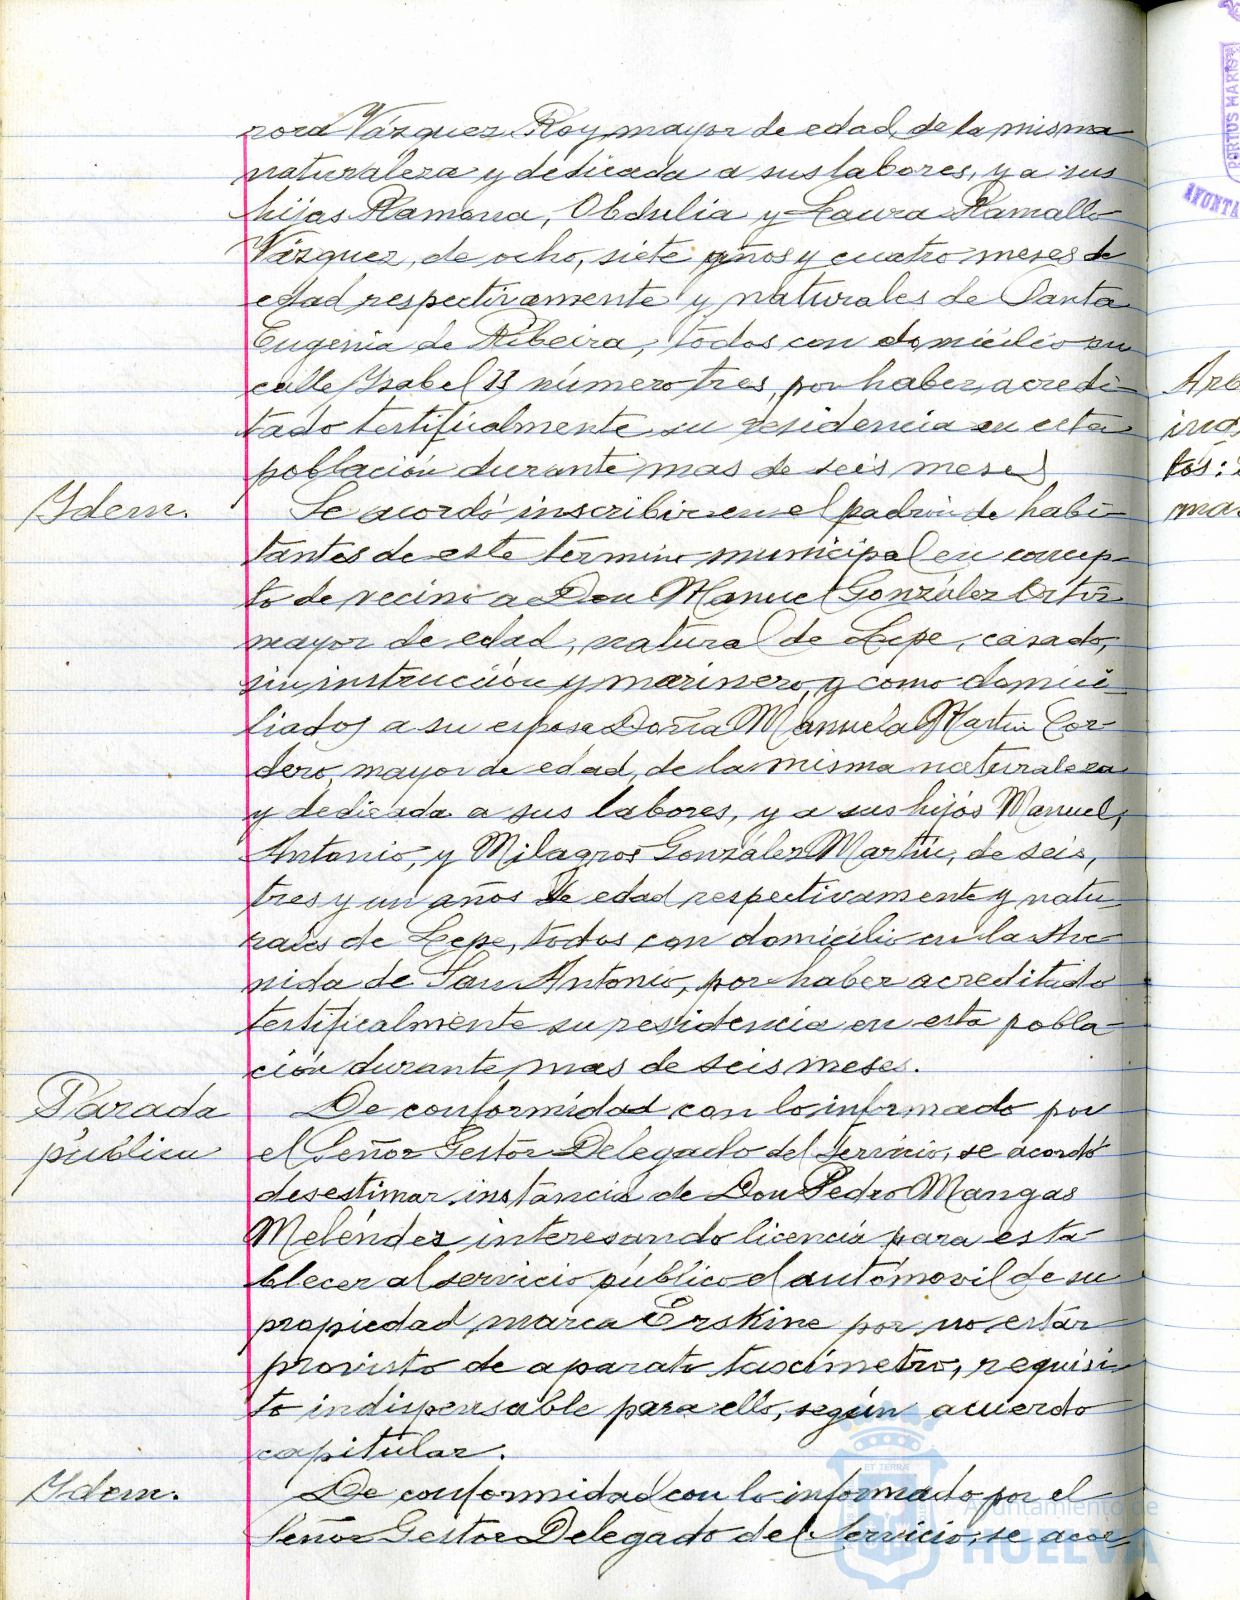 nora Vázquez Roy, mayor de edad, de la misma
naturaleza y dedicada a sus labores, y a sus
hijas Ramona, Obdulia y Laura Ramallo
Vázquez, de ocho, siete años y cuatro meses de
edad respectivamente y naturales de Santa
Eugenia de Ribeira, todos con domicilio en
calle Ysabel II número tres, por haber acredi-
tado testificalmente su residencia en esta
población durante mas de seis meses
Ydem.
Se acordó inscribir en el padrón de habi-
tantes de este término municipal en concep-
to de vecino a Don Manuel González Ortiz
mayor de edad, natural de Lepe, casado,
sin instrucción y marinero, y como domici-
liados a su esposa Doña Manuela Martin Cor-
dero, mayor de edad, de la misma naturaleza
y dedicada a sus labores, y a sus hijos Manuel,
Antonio, y Milagros González Martin, de seis,
tres y un años de edad respectivamente y natu-
rales de Lepe, todos con domicilio en la Ave-
nida de San Antonio, por haber acreditado
testificalmente su residencia en esta pobla-
ción durante mas de seis meses.
Parada
pública
De conformidad con lo informado por
el Señor Gestor Delegado del Servicio, se acordó
desestimar instancia de Don Pedro Mangas
Meléndez interesando licencia para esta-
blecer al servicio público el automovil de su
propiedad marca Erskine por no estar
provisto de aparato tascímetro, requisi-
to indispensable para ello, según acuerdo
capitular.
Ydem.
De conformidad con lo informado por el
Señor Gestor Delegado del Servicio, se acor
Arb
ing
tos:
mas
PORTUS MARIS
AYUNTA
ET TERRÆ
Ayuntamiento de
HUELVA